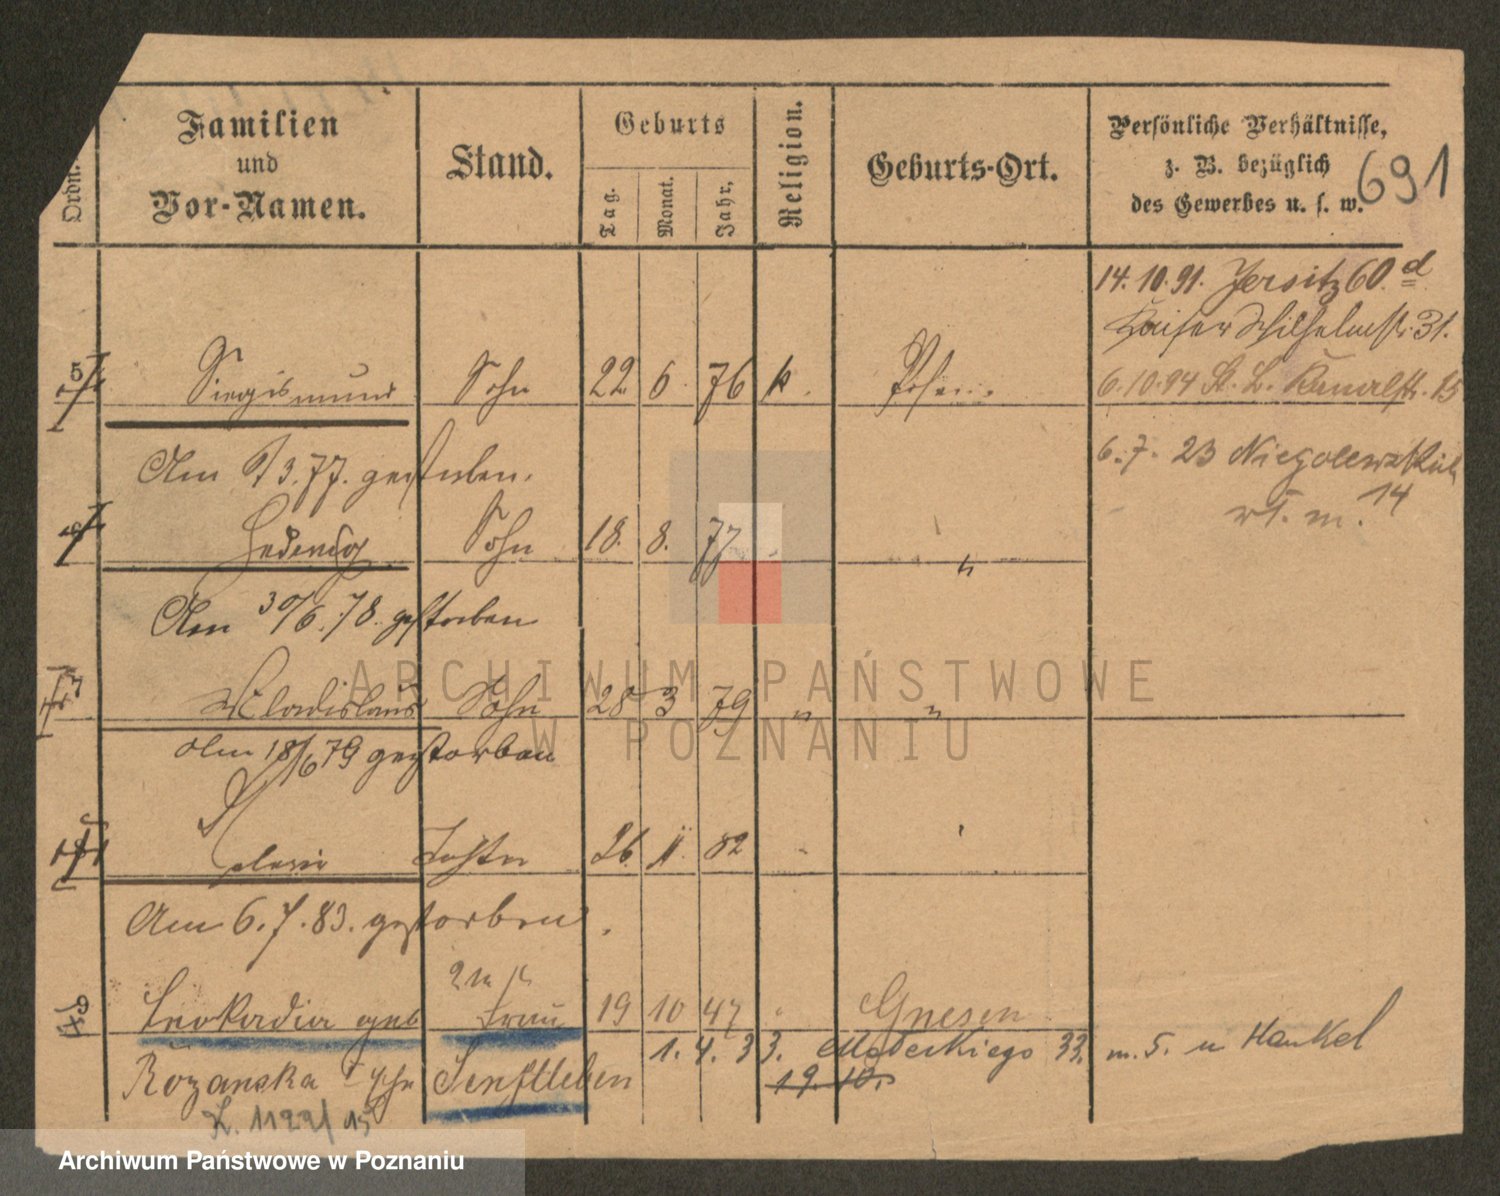 Ordn.
Familien
und
Vor-Namen.
Stand.
Geburts
Tag.
Monat.
Jahr.
Religion.
Geburts-Ort.
Persönliche Verhältnisse,
z. B. bezüglich
des Gewerbes u. s. w.
691
14.10.91. Jersitz 60 d
Kaiser Wilhelmstr. 31.
5 Siegismund Sohn 22 6. 76 k. Posen.
6.10.94 St. L. Kanalstr. 15
6.7. 23 Niegolewskich
14
Am 9/3.77. gestorben.
Sohn 18. 8. 77 "
Am 30/6.78. gestorben
7 Wladislaus Sohn 28 3 79 " "
Am 18/6 79 gestorben
Tochter 26. 11. 82
Am 6.7.83. gestorben.
2te
Leokadia geb Frau 19 10 47 " Gnesen
1.4.33. Mateckiego 33. m. 5. u Henkel
Rożanska Senftleben
19.10.
1122/15
ARCHIWUM PAŃSTWOWE
W POZNANIU
Archiwum Państwowe w Poznaniu